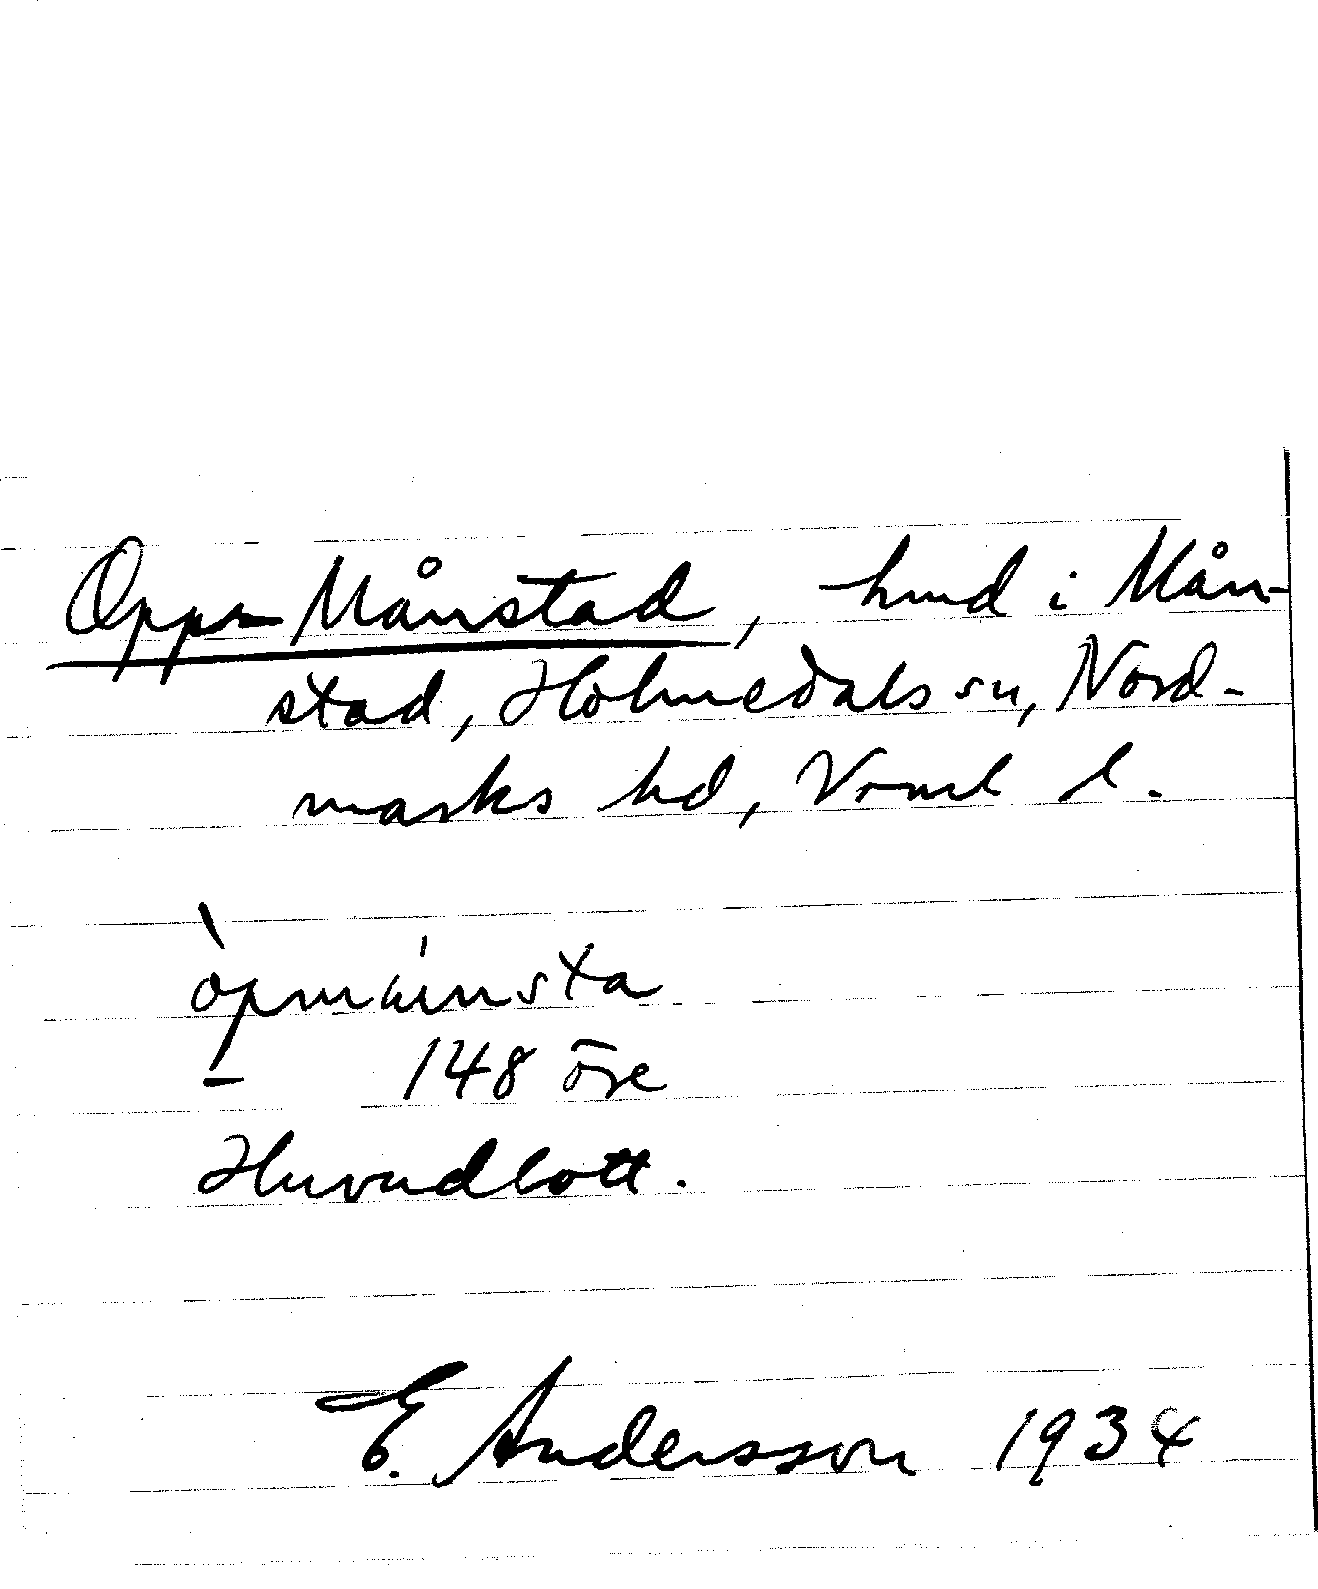 Opps-Månstad, hmd i Mån-
stad, Holmedals sn, Nord-
marks hd, Vrml l.
òpmánsta
148 öre
Huvudlott.
E. Andersson 1934